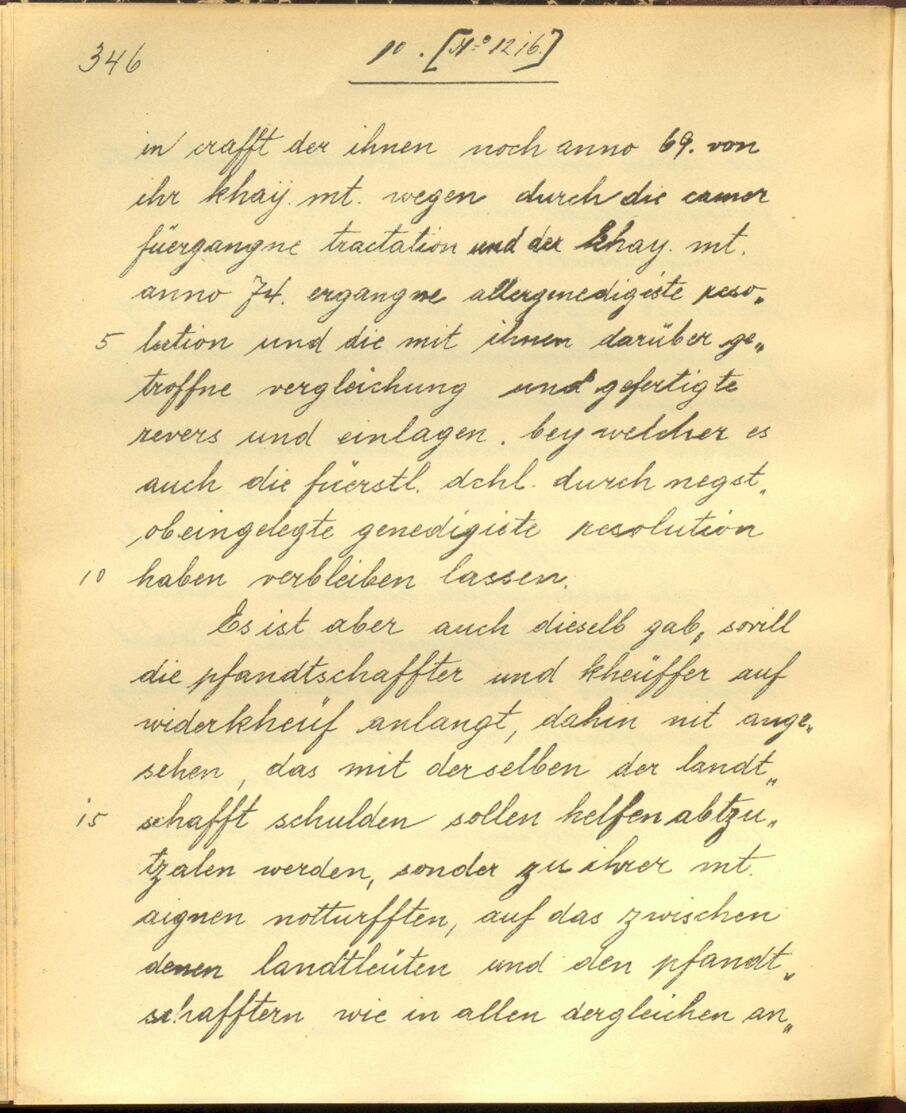 346
10. [No 1216.]
in crafft der ihnen noch anno 69. von
ihr khaÿ. mt. wegen durch die camer
füergangne tractation und der khay. mt.
anno 74. ergangne allergenedigiste reso„
5 lution und die mit ihnen darüber ge„
troffne vergleichung und gefertigte
revers und einlagen. bey welcher es
auch die füerstl. dchl. durch negst„
obeingelegte genedigiste resolution
10 haben verbleiben lassen.
Es ist aber auch dieselb gab, sovill
die pfandtschaffter und kheüffer auf
widerkheüf anlangt, dahin nit ange„
sehen, das mit derselben der landt„
15 schafft schulden sollen helfen abtzu„
tzalen werden, sonder zu ihrer mt.
aignen notturfften, auf das zwischen
denen landtleüten und den pfandt„
schafftern wie in allen dergleichen an„